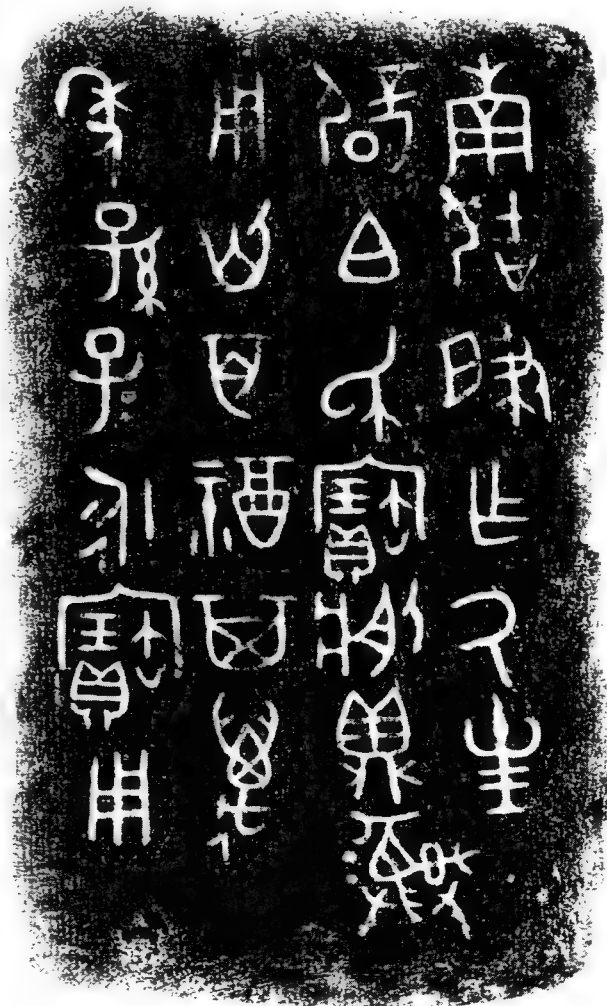 南姞肇乍氒皇
辟白氏寶𩱧彝
用匄百福其萬
年孫子永寶用